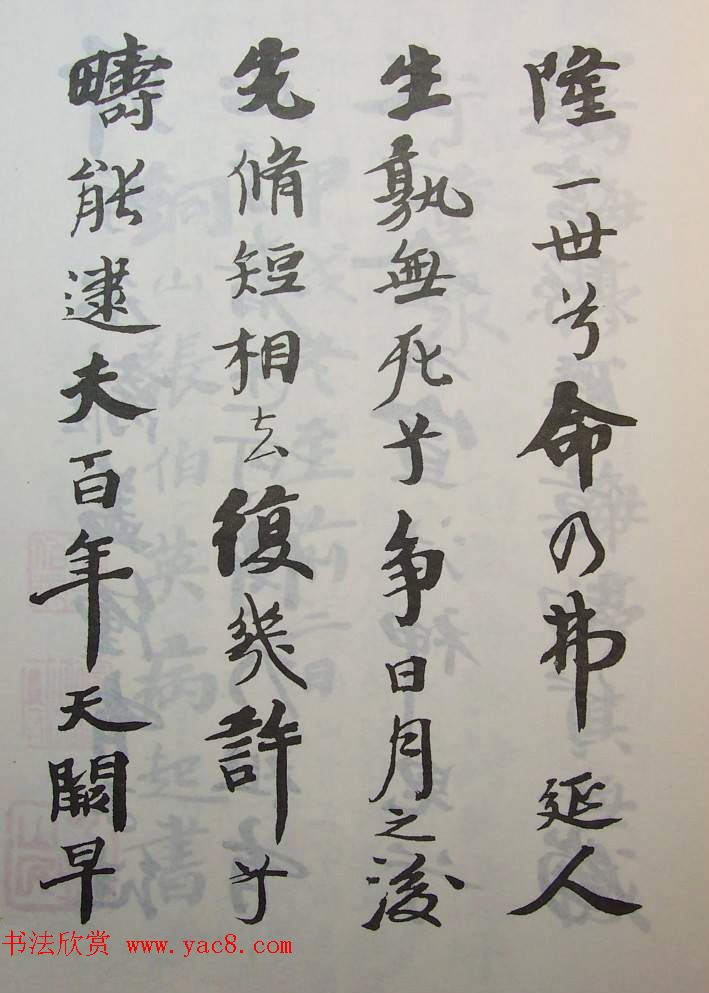 隆一世兮命乃弗延人
生孰無死兮争日月之後
先脩短相去復幾許兮
疇能逮夫百年天闕早
书法欣赏 www.yac8.com